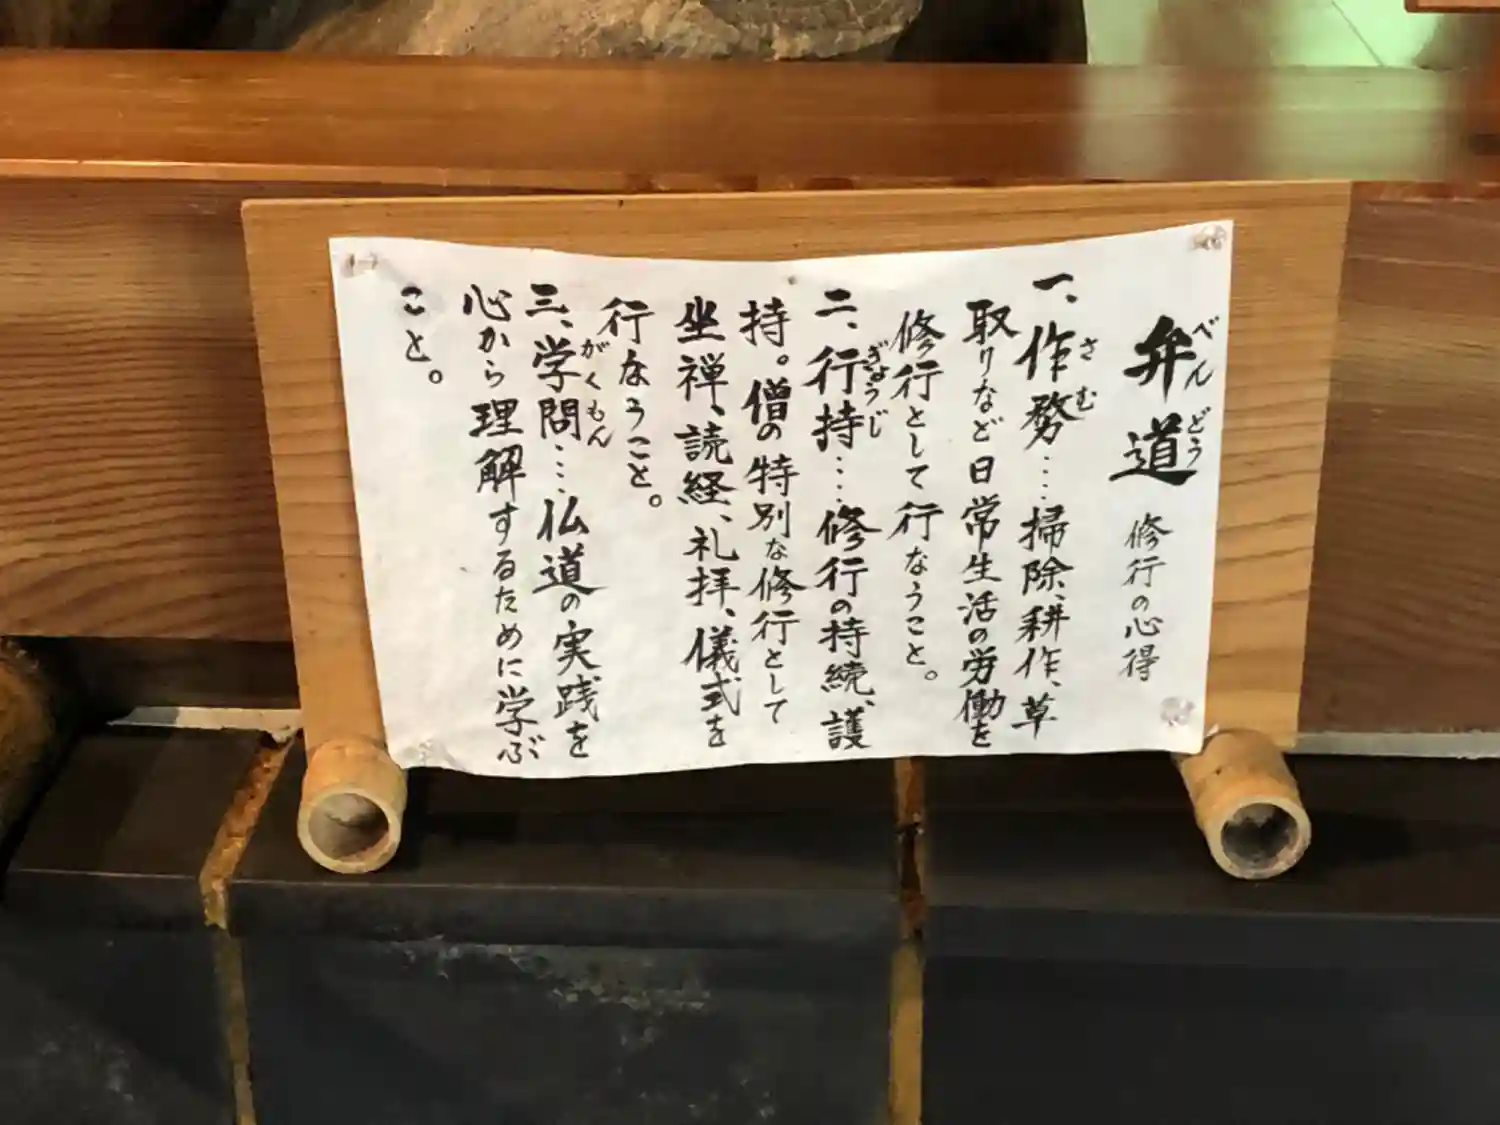 弁道 修行の心得
べんどう
一、作務…掃除、耕作、草
さむ
取りなど日常生活の労働を
修行として行なうこと。
二、行持…修行の持続、護
ぎょうじ
持。僧の特別な修行として
坐禅、読経、礼拝、儀式を
行なうこと。
三、学問…仏道の実践を
がくもん
心から理解するために学ぶ
こと。